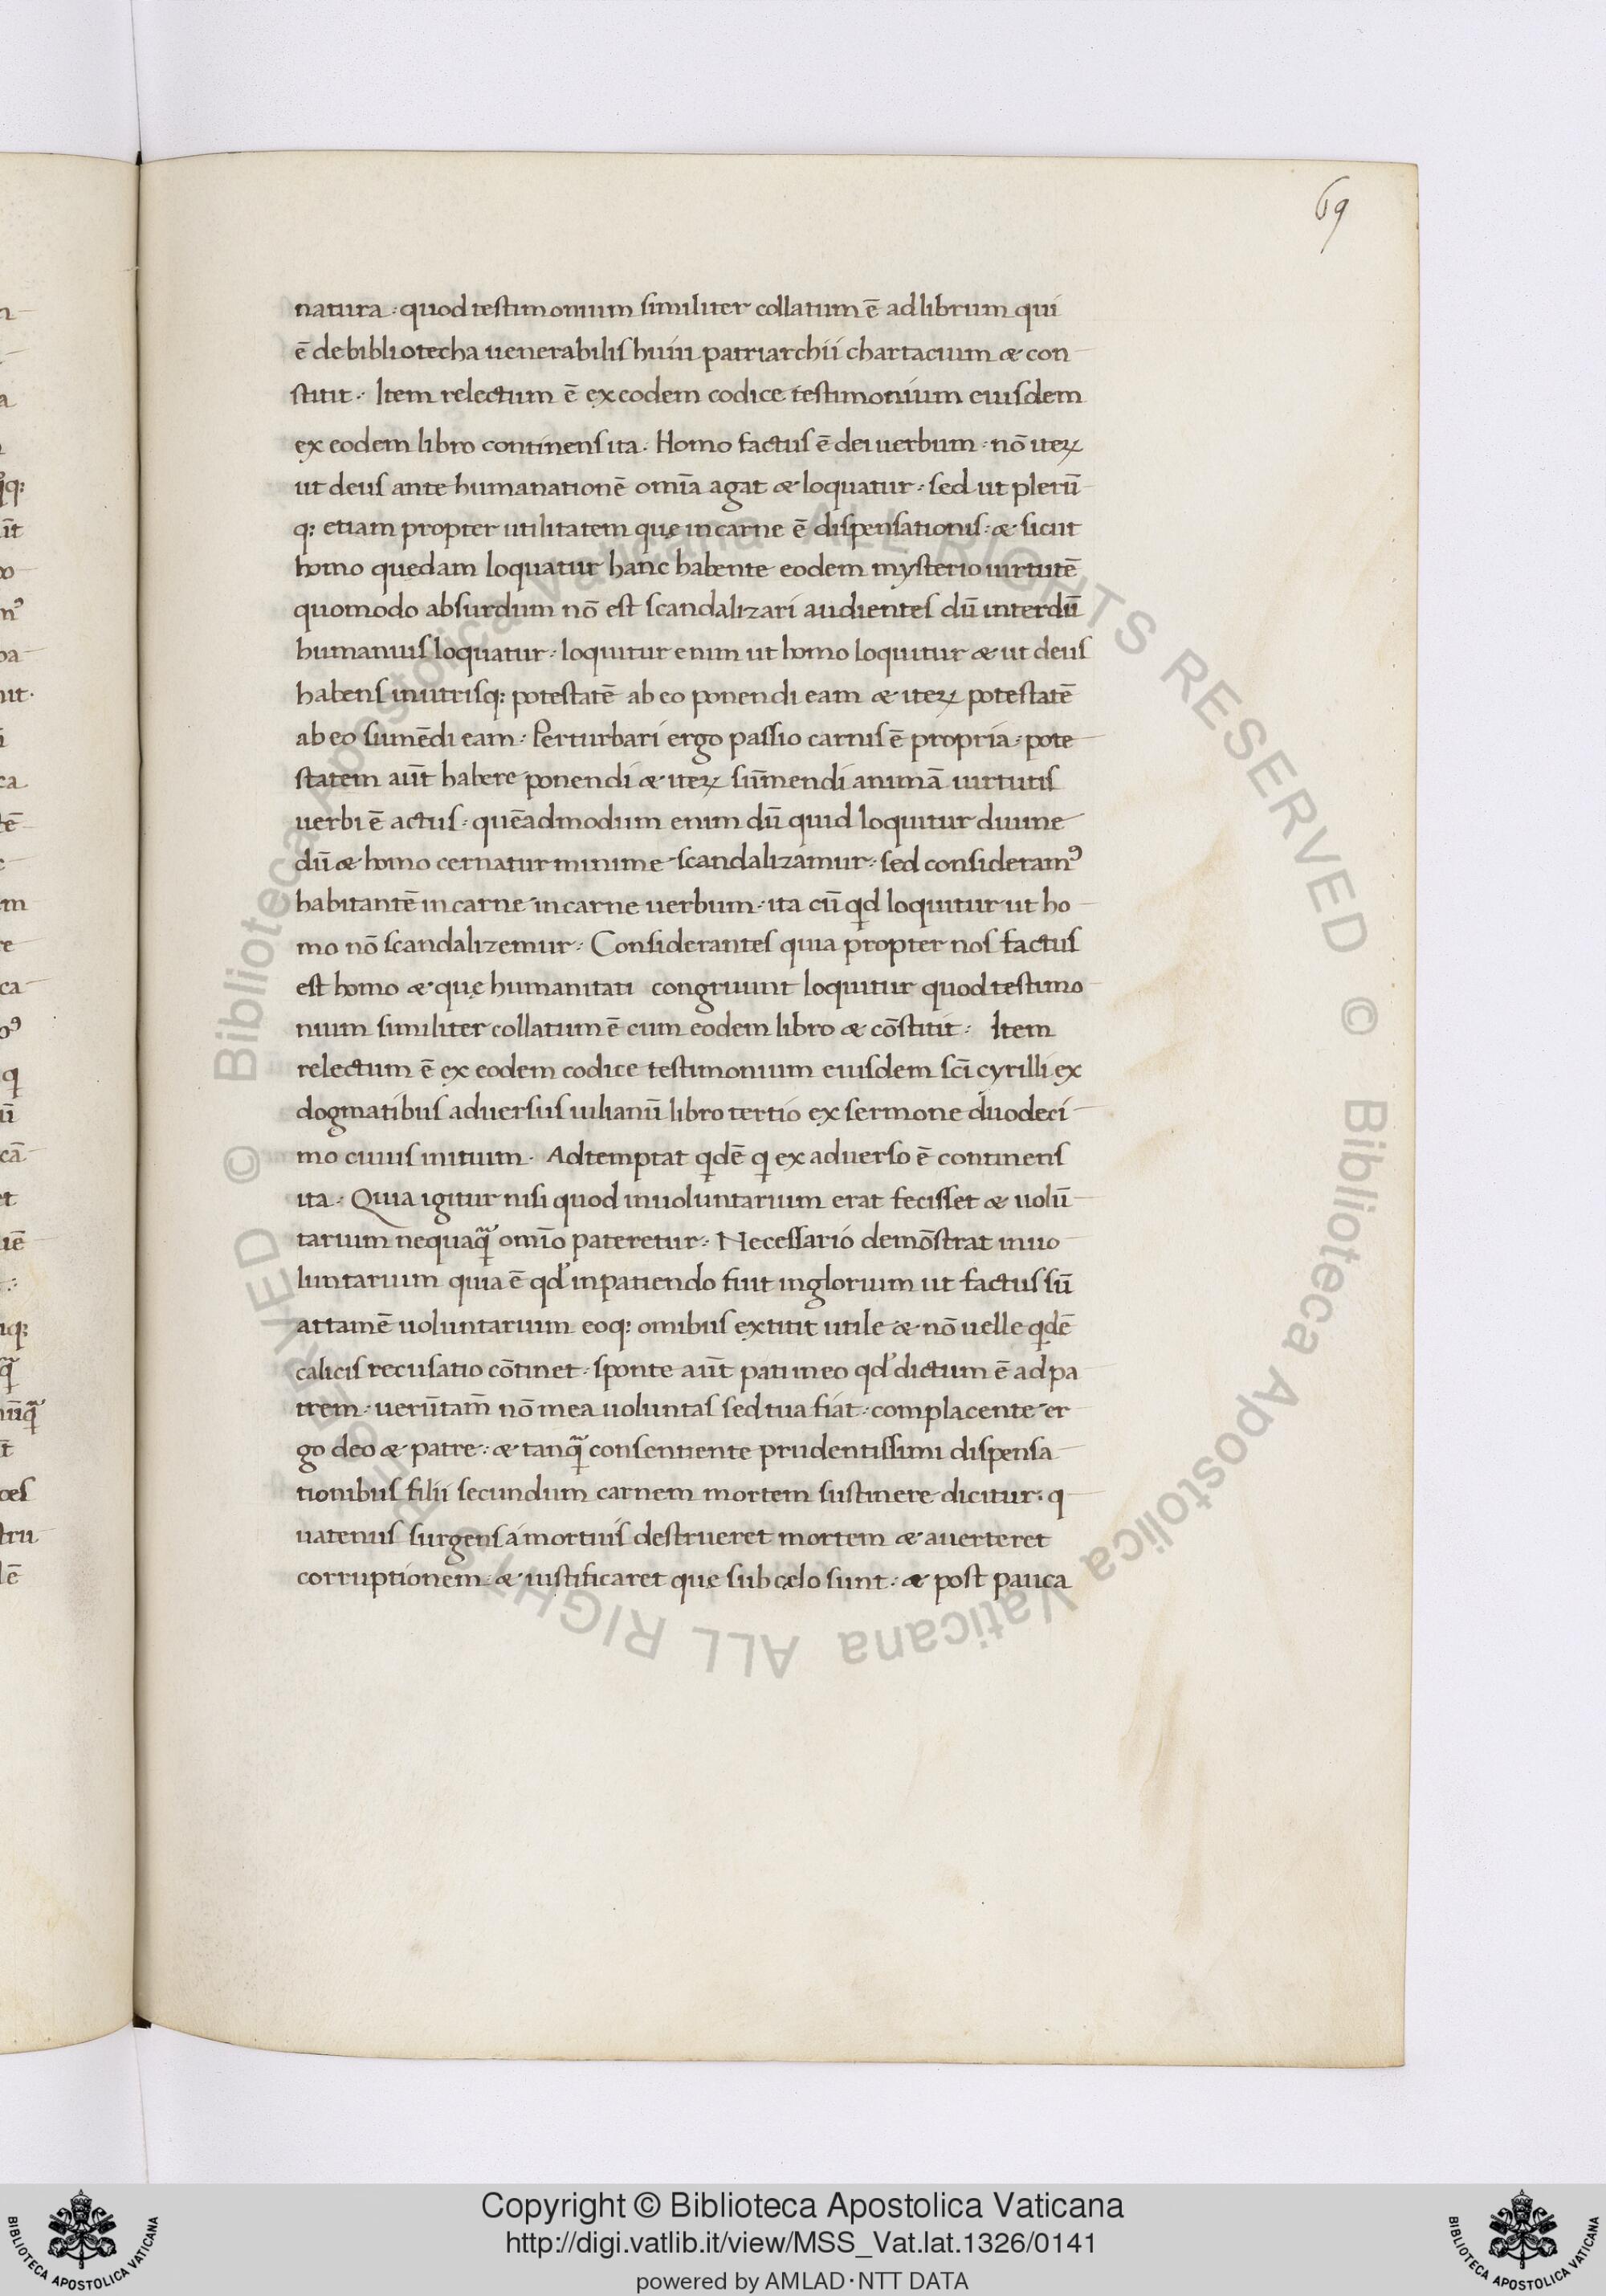 69
natura .· quod testimonium similiter collatum ē ad librum qui
ē de bibliotecha uenerabilis huiu patriarchii chartacium & con
stitit .· Item relectum ē ex eodem codice testimonium eiusdem
ex eodem libro continens ita . Homo factus ē dei uerbum · nō iteꝝ
ut deus ante humanationē omīa agat & loquatur .· sed ut plerū
q: etiam propter utilitatem quę in carne ē dispensationis .· & sicut
homo quędam loquatur hanc habente eodem mysterio uirtutē
quomodo absurdum nō est scandalizari audientes dū interdū
humanius loquatur .· loquitur enim ut homo loquitur & ut deus
habens in utrisq: potestatē ab eo ponendi eam & iteꝝ potestatē
ab eo sumēdi eam .· Perturbari ergo passio carnis ē propria .· pote
statem aūt habere ponendi & iteꝝ sūmendi animā uirtutis
uerbi ē actus .· quēadmodum enim dū quid loquitur diuine
dū & homo cernatur minime scandalizamur .· sed consideramꝰ
habitantē in carne in carne uerbum .· ita cū qd loquitur ut ho
mo nō scandalizemur .· Considerantes quia propter nos factus
est homo & quę humanitati congruunt loquitur quod testimo
nium similiter collatum ē cum eodem libro & cōstitit .· Item
relectum ē ex eodem codice testimonium eiusdem scī cyrilli ex
dogmatibus aduersus iulianū libro tertio ex sermone duodeci
mo cuius initium . Adtemptat qdē q ex aduerso ē continens
ita .· Quia igitur nisi quod inuoluntarium erat fecisset & uolū
tarium nequaqᷓ omīo pateretur .· Necessario demōstrat inuo
luntarium quia ē qd' in patiendo fuit inglorium ut factus sū
attamē uoluntarium eoq: omibus extitit utile & nō uelle qdē
calicis recusatio cōtinet .· sponte aūt pati in eo qd' dictum ē ad pa
trem .· uerūtam̄ nō mea uoluntas sed tua fiat .· complacente er
go deo & patre .· & tanqᷓ consentiente prudentissimi dispensa
tionibus filii secundum carnem mortem sustinere dicitur .· q
uatenus surgens á mortuis destrueret mortem & auerteret
corruptionem .· & iustificaret quę sub cęlo sunt .· & post pauca
Copyright © Biblioteca Apostolica Vaticana
http://digi.vatlib.it/view/MSS_Vat.lat.1326/0141
powered by AMLAD·NTT DATA
BIBLIOTECA APOSTOLICA VATICANA
BIBLIOTECA APOSTOLICA VATICANA
© Biblioteca Apostolica Vaticana ALL RIGHTS RESERVED © Biblioteca Apostolica Vaticana ALL RIGHTS RESERVED